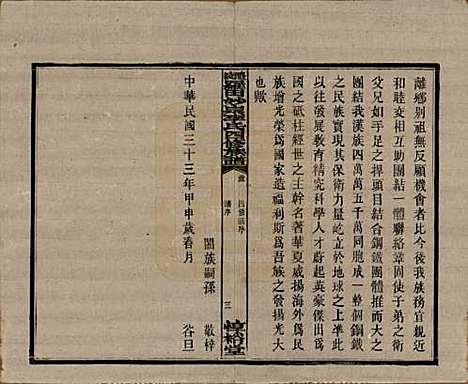 離鄉別祖無反顧機會者比今後我族務宜親近
和睦交相互助團結一體聯絡鞏固使子弟之衛
父兄如手足之捍頭目結合鋼鐵團體推而大之
團結我漢族四萬萬五千萬同胞成一整個鋼鐵
之民族實現其保衛力量屹立於地球之上準此
以往發展教育精究科學人才蔚起英豪傑出為
國之砥柱經世之主幹名著華夏威揚海外為民
族增光榮為國家造福利斯為吾族之發揚光大
也歟
中華民國三十三年甲申歲春月
闔族嗣孫
敬梓
谷旦
氏四修族譜
四修譜序
譜序
三
惇裕堂